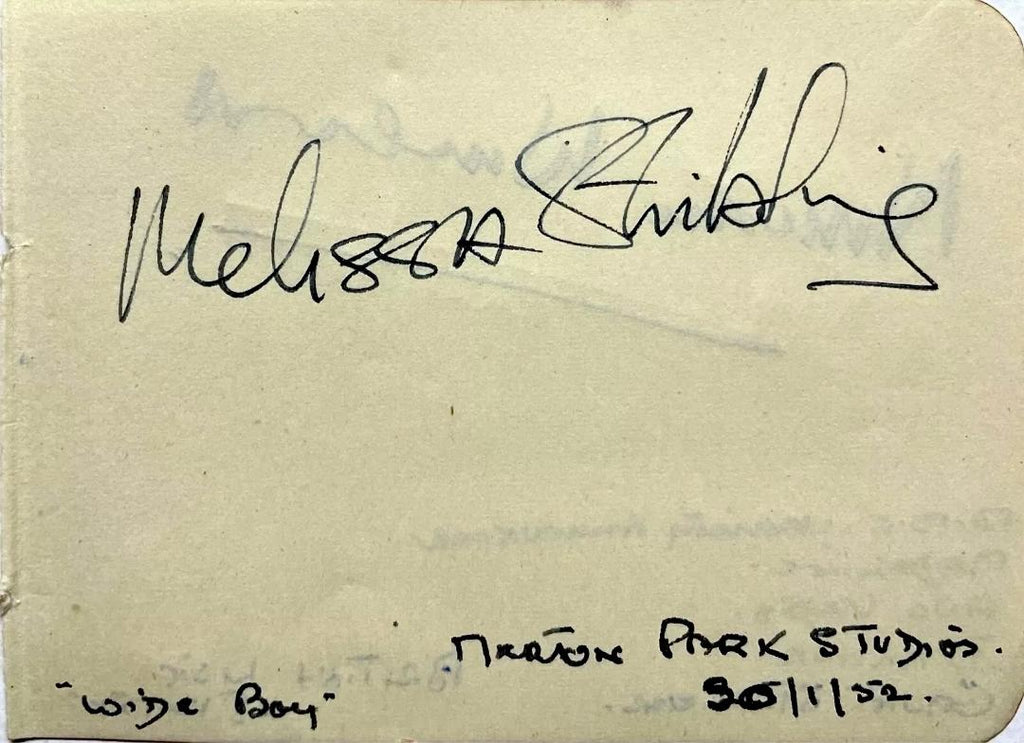 Melissa Stribling
MERTON PARK STUDIOS.
"Wide Boy"
30/1/52.